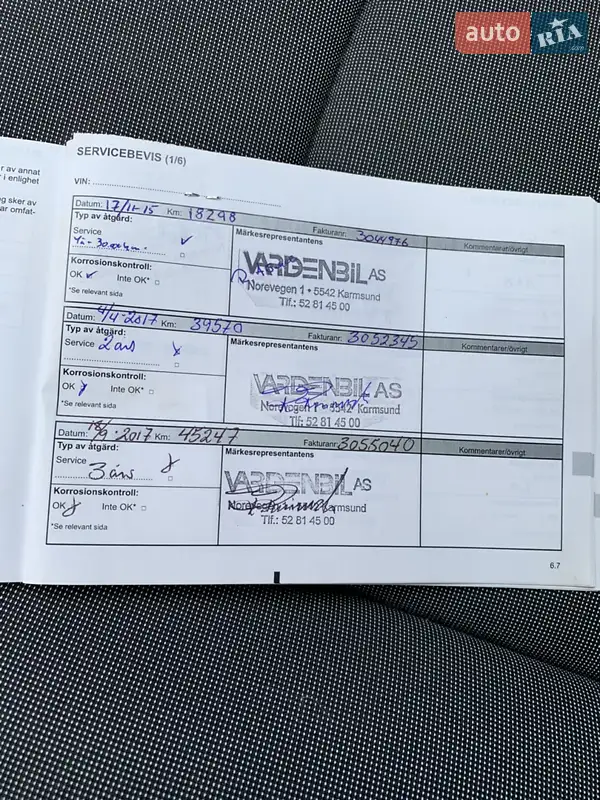 auto RIA.com
r av annat
r i enlighet
g sker av
ar omfat-
SERVICEBEVIS (1/6)
VIN:
Datum: 17/11-15 Km: 18298 Fakturanr: 3044976
Typ av åtgärd:
Service
Märkesrepresentantens
Kommentarer/övrigt
Korrosionskontroll:
OK Inte OK*
*Se relevant sida
VARDENBIL AS
Norevegen 1 • 5542 Karmsund
Tlf.: 52 81 45 00
Datum: 4/4-2017 Km: 39570 Fakturanr: 3052345
Typ av åtgärd:
Service 2 års
Märkesrepresentantens
Kommentarer/övrigt
Korrosionskontroll:
OK Inte OK*
*Se relevant sida
VARDENBIL AS
Norevegen 1 • 5542 Karmsund
Tlf.: 52 81 45 00
Datum: 18/9-2017 Km: 45247 Fakturanr: 3055040
Typ av åtgärd:
Service 3 års
Märkesrepresentantens
Kommentarer/övrigt
Korrosionskontroll:
OK Inte OK*
*Se relevant sida
VARDENBIL AS
Karmsund
Tlf.: 52 81 45 00
6.7